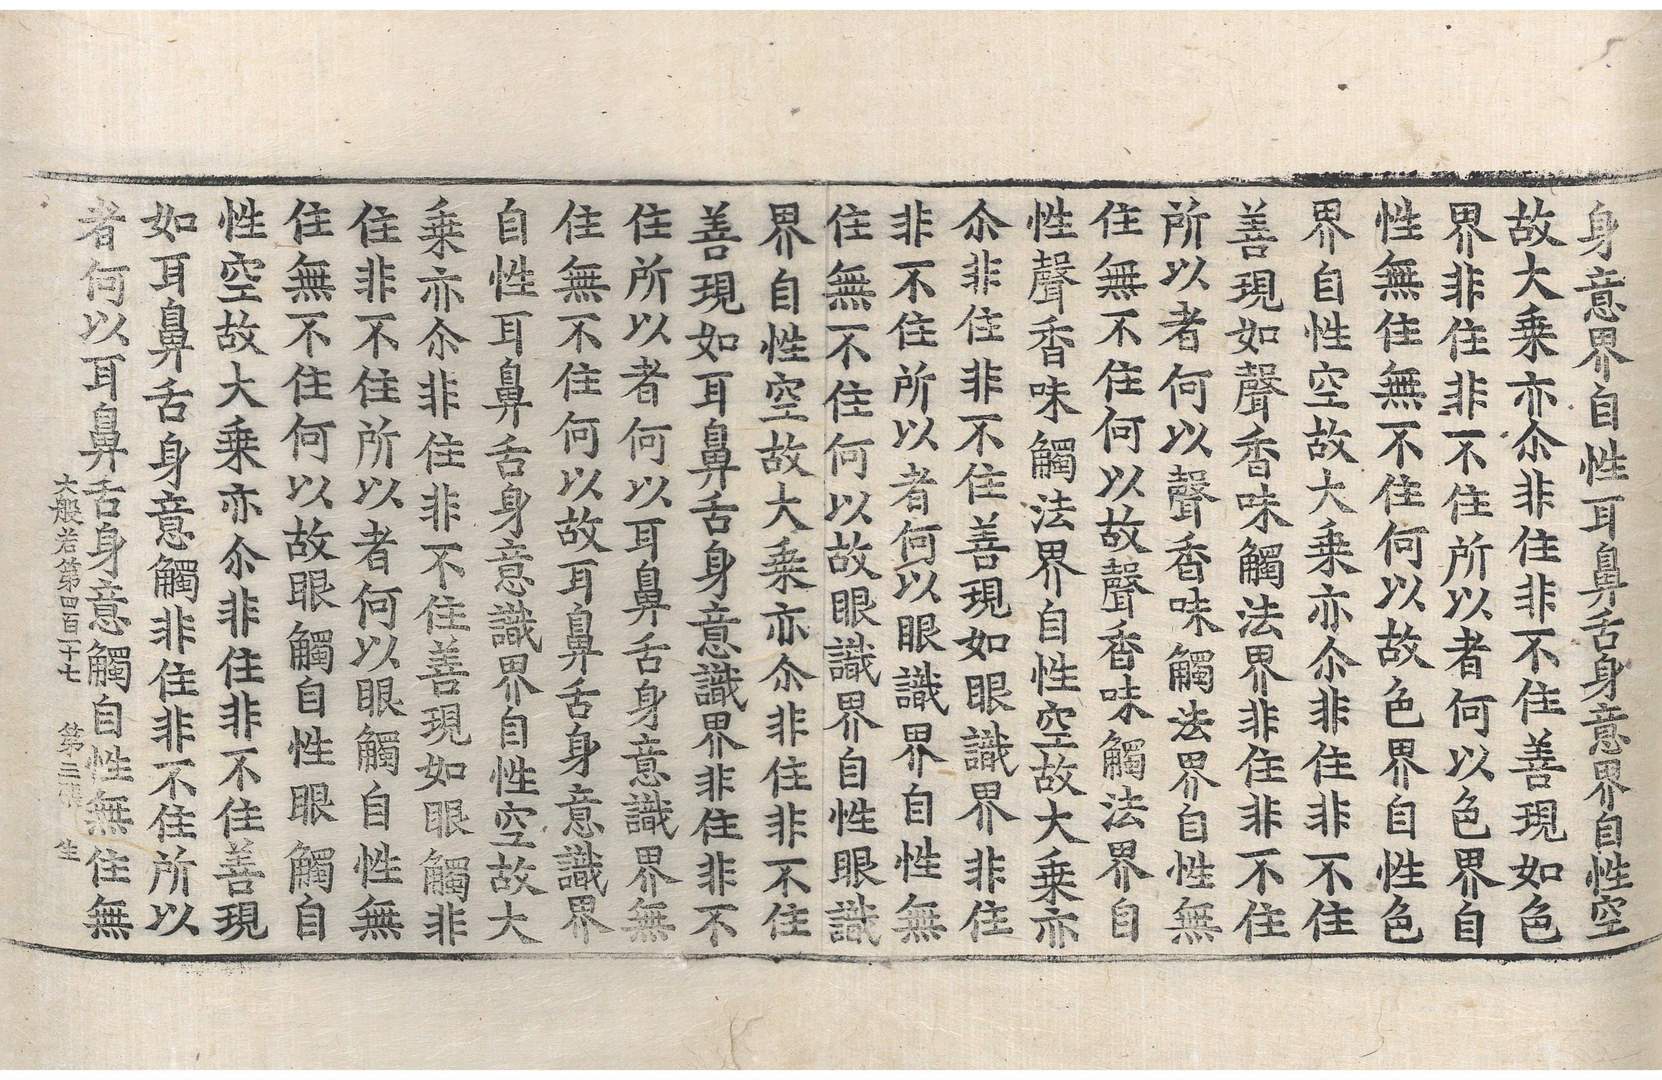 身意界自性耳鼻舌身意界自性空
故大乗亦尒非住非不住善現如色
界非住非不住所以者何以色界自
性無住無不住何以故色界自性色
界自性空故大乗亦尒非住非不住
善現如聲香味觸法界非住非不住
所以者何以聲香味觸法界自性無
住無不住何以故聲香味觸法界自
性聲香味觸法界自性空故大乗亦
尒非住非不住善現如眼識界非住
非不住所以者何以眼識界自性無
住無不住何以故眼識界自性眼識
界自性空故大乗亦尒非住非不住
善現如耳鼻舌身意識界非住非不
住所以者何以耳鼻舌身意識界無
住無不住何以故耳鼻舌身意識界
自性耳鼻舌身意識界自性空故大
乗亦尒非住非不住善現如眼觸非
住非不住所以者何以眼觸自性無
住無不住何以故眼觸自性眼觸自
性空故大乗亦尒非住非不住善現
如耳鼻舌身意觸非住非不住所以
者何以耳鼻舌身意觸自性無住無
大般若第四百十七 第二張